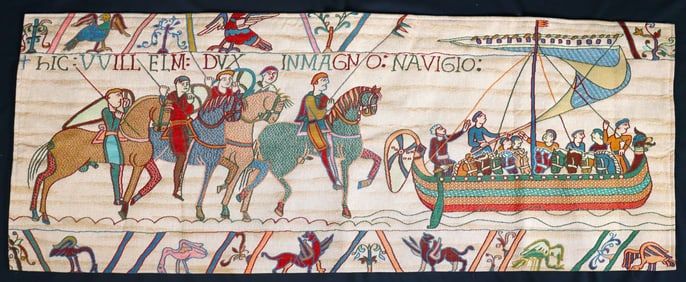 + hIC: VVILL ELM: DVX IN MAGNO: NAVIGIO: